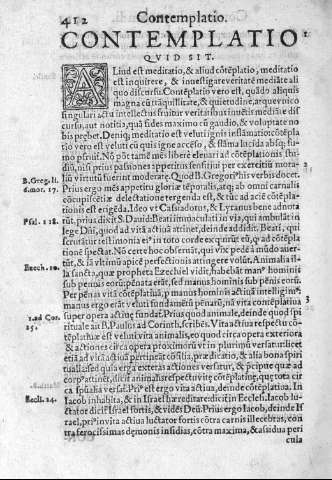 412 Contemplatio.
CONTEMPLATIO
QVID SIT.
ALiud est meditatio, & aliud cōtēplatio, meditatio
est inquirere, & inuestigare veritatē mediāte ali
quo discursu. Contēplatio vero est, quādo aliquis
magna cū trāquillitate, & quietudine, atque vnico
singulari actu intellectus fruitur veritatibus iunctis mediāte di
cursu, aut notitia, quā sides maximo cū gaudio, & voluptate no
bis præbet. Deniq; meditatio est veluti ignis inflāmatio: cōtēpla
tio vero est veluti cū quis igne accēso, & flāma lucida absq; fu
mo fruit. Nō pōt tamē mēs liberè eleuari ad cōtēplationis stu
diū, nisi prius passiones appetitus sensitiui per exercitiū mora
B. Greg. li. liū virtutū fuerint moderatæ. Quod B. Gregori⁹ his verbis docet.
6. mor. 17. Prius ergo mēs appetitu gloriæ tēporalis, atq; ab omni carnalis
cōcupiscētiæ delectatione tergenda est, & tūc ad aciē cōtēpla
tionis est erigēda. Ideo vt Casiodorus, & Lyranus bene adnota
Psal. 118. rūt, prius dixit S. Dauid. Beati immaculati in via, qui ambulāt in
lege Dñi, quod ad vitā actiuā attinet, deinde addidit. Beati, qui
scrutātur testimonia ei⁹ in toto corde exquirūt eū, qđ ad cōtēpla
tionē spectat. Nō certe hoc obseruāt, qui vix pedē à mūdo auer-
tūt, & iā vitimū apicē perfectionis attingere volūt. Animalia il-
Ezech. 10. la sancta, quæ propheta Ezechiel vidit, habebāt man⁹ hominis
sub pennis eorū: pēnata erāt, sed manus hominis sub pēnis eorū.
Per pēnas vita cōtēplatiua, p manus hominis actiua intelligitur,
manus ergo erāt veluti fundamētū pēnarū, nā vita cōtēplatiua
1. ad Cor. super opera actiuę fundat. Prius quod animale, deinde quod spi
15. rituale ait B. Paulus ad Corinth. scribēs. Vita actiua respectu cō
tēplatiuæ est veluti vita animalis, eo quod circa opera exteriora
& actiones circa opera proximorū vt in plurimū versatur: licet
etiā ad vitā actiuā pertineāt cōsilia, prædicatio, & alia bona spiri
tualia: sed quia erga exteras actiones versatur, & præcipue quæ ad
corp⁹ attinēt, dicit animalis respectu vitę cōtēplatiuę, quę tota cir
ca spualia versat. Pri⁹ est ergo vita actiua, deinde cōtēplatiua. In
Eccli. 24. Iacob inhabita, & in Israel hæreditare: dicit in Ecclesi. Iacob lu-
ctator dicit Israel fortis, & vidēs Deū. Prius ergo Iacob, deinde Is
rael, pri⁹ in vita actiua luctator fortis cōtra carnis illecebras, con
tra ferocissimas demonis insidias, cōtra maxima, & assidua peri
cula